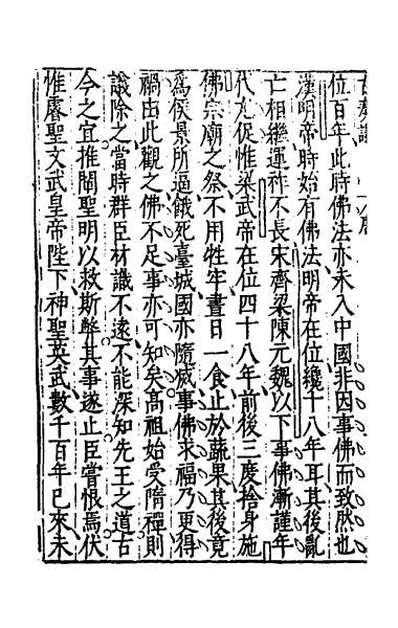 位百年此時佛法亦未入中國非因事佛而致然也
漢明帝時始有佛法明帝在位纔十八年耳其後亂
亡相繼運祚不長宋齊梁陳元魏以下事佛漸謹年
代尤促惟梁武帝在位四十八年前後三度捨身施
佛宗廟之祭不用牲牢晝日一食止於蔬果其後竟
為侯景所逼餓死臺城國亦隨滅事佛求福乃更得
禍由此觀之佛不足事亦可知矣高祖始受隋禪則
議除之當時群臣材識不遠不能深知先王之道古
今之宜推闡聖明以救斯弊其事遂止臣嘗恨焉伏
惟睿聖文武皇帝陛下神聖英武數千百年已來未